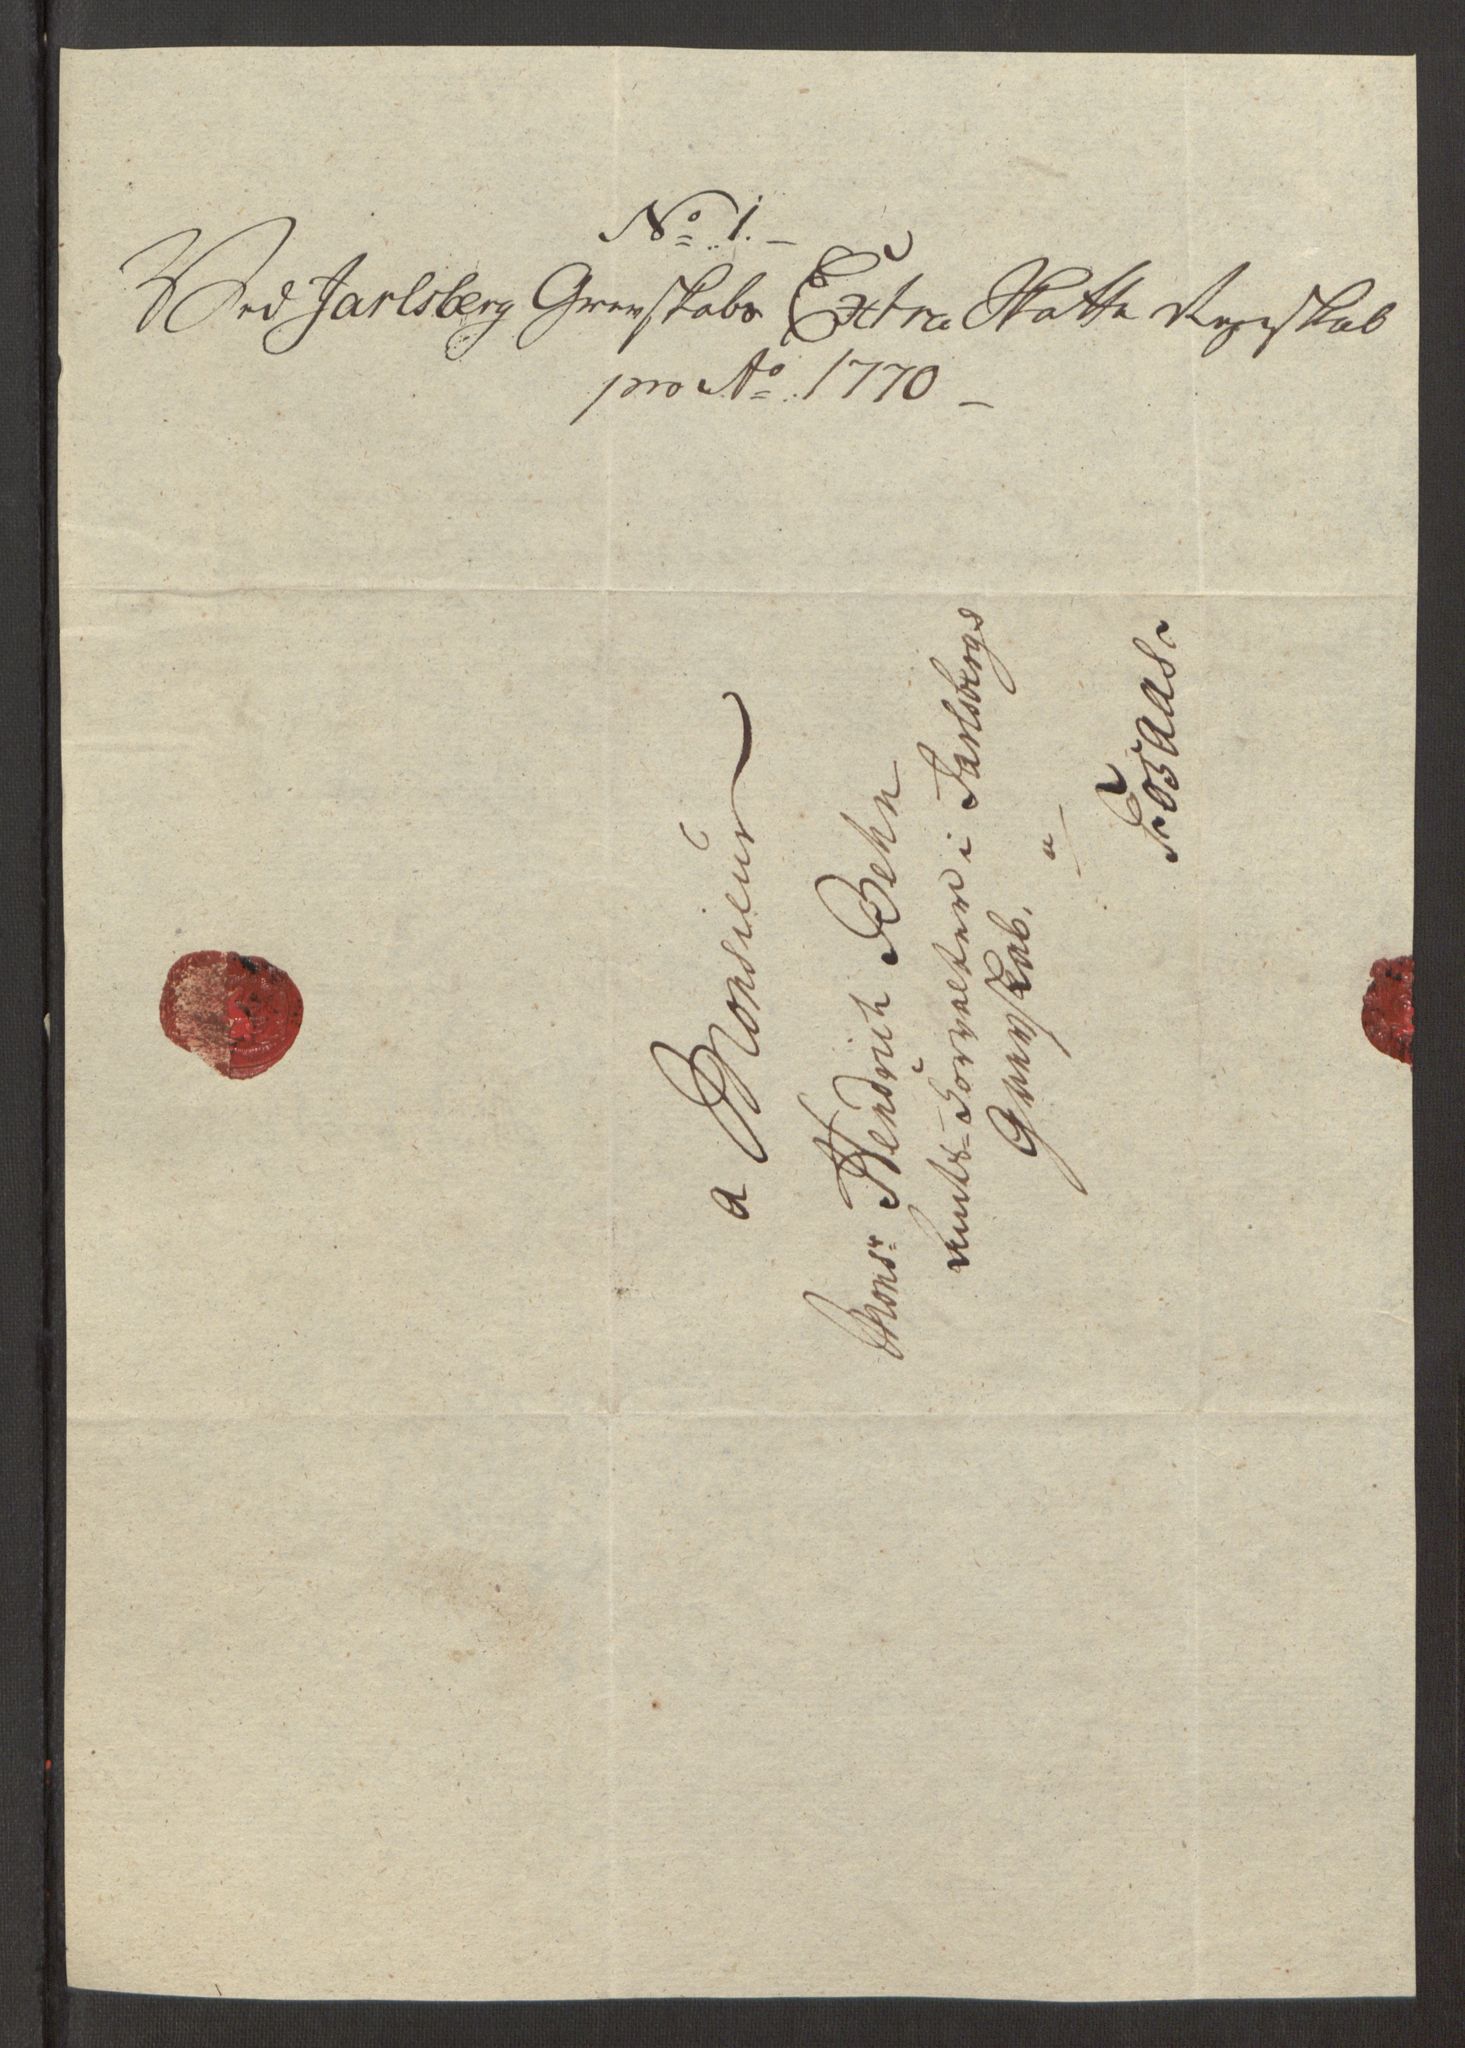 No 1.
Ved Jarlsberg Grevskabs Extra Skatte Regnskab
pro Ao 1770
a Monsieur
Monsr Hendrich Behn
Amts-Forvalter i Jarlsbergs
Grevskab.
a
Foxaas.